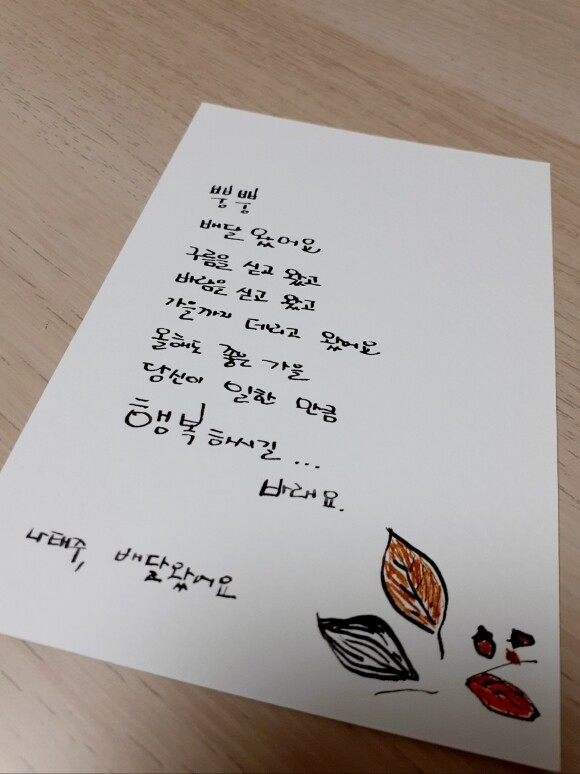 뿡뿡
배달 왔어요
구름을 싣고 왔고
바람을 싣고 왔고
가을까지 데리고 왔어요
올해도 좋은 가을
당신이 일한 만큼
행복하시길...
바래요.
나태주, 배달왔어요